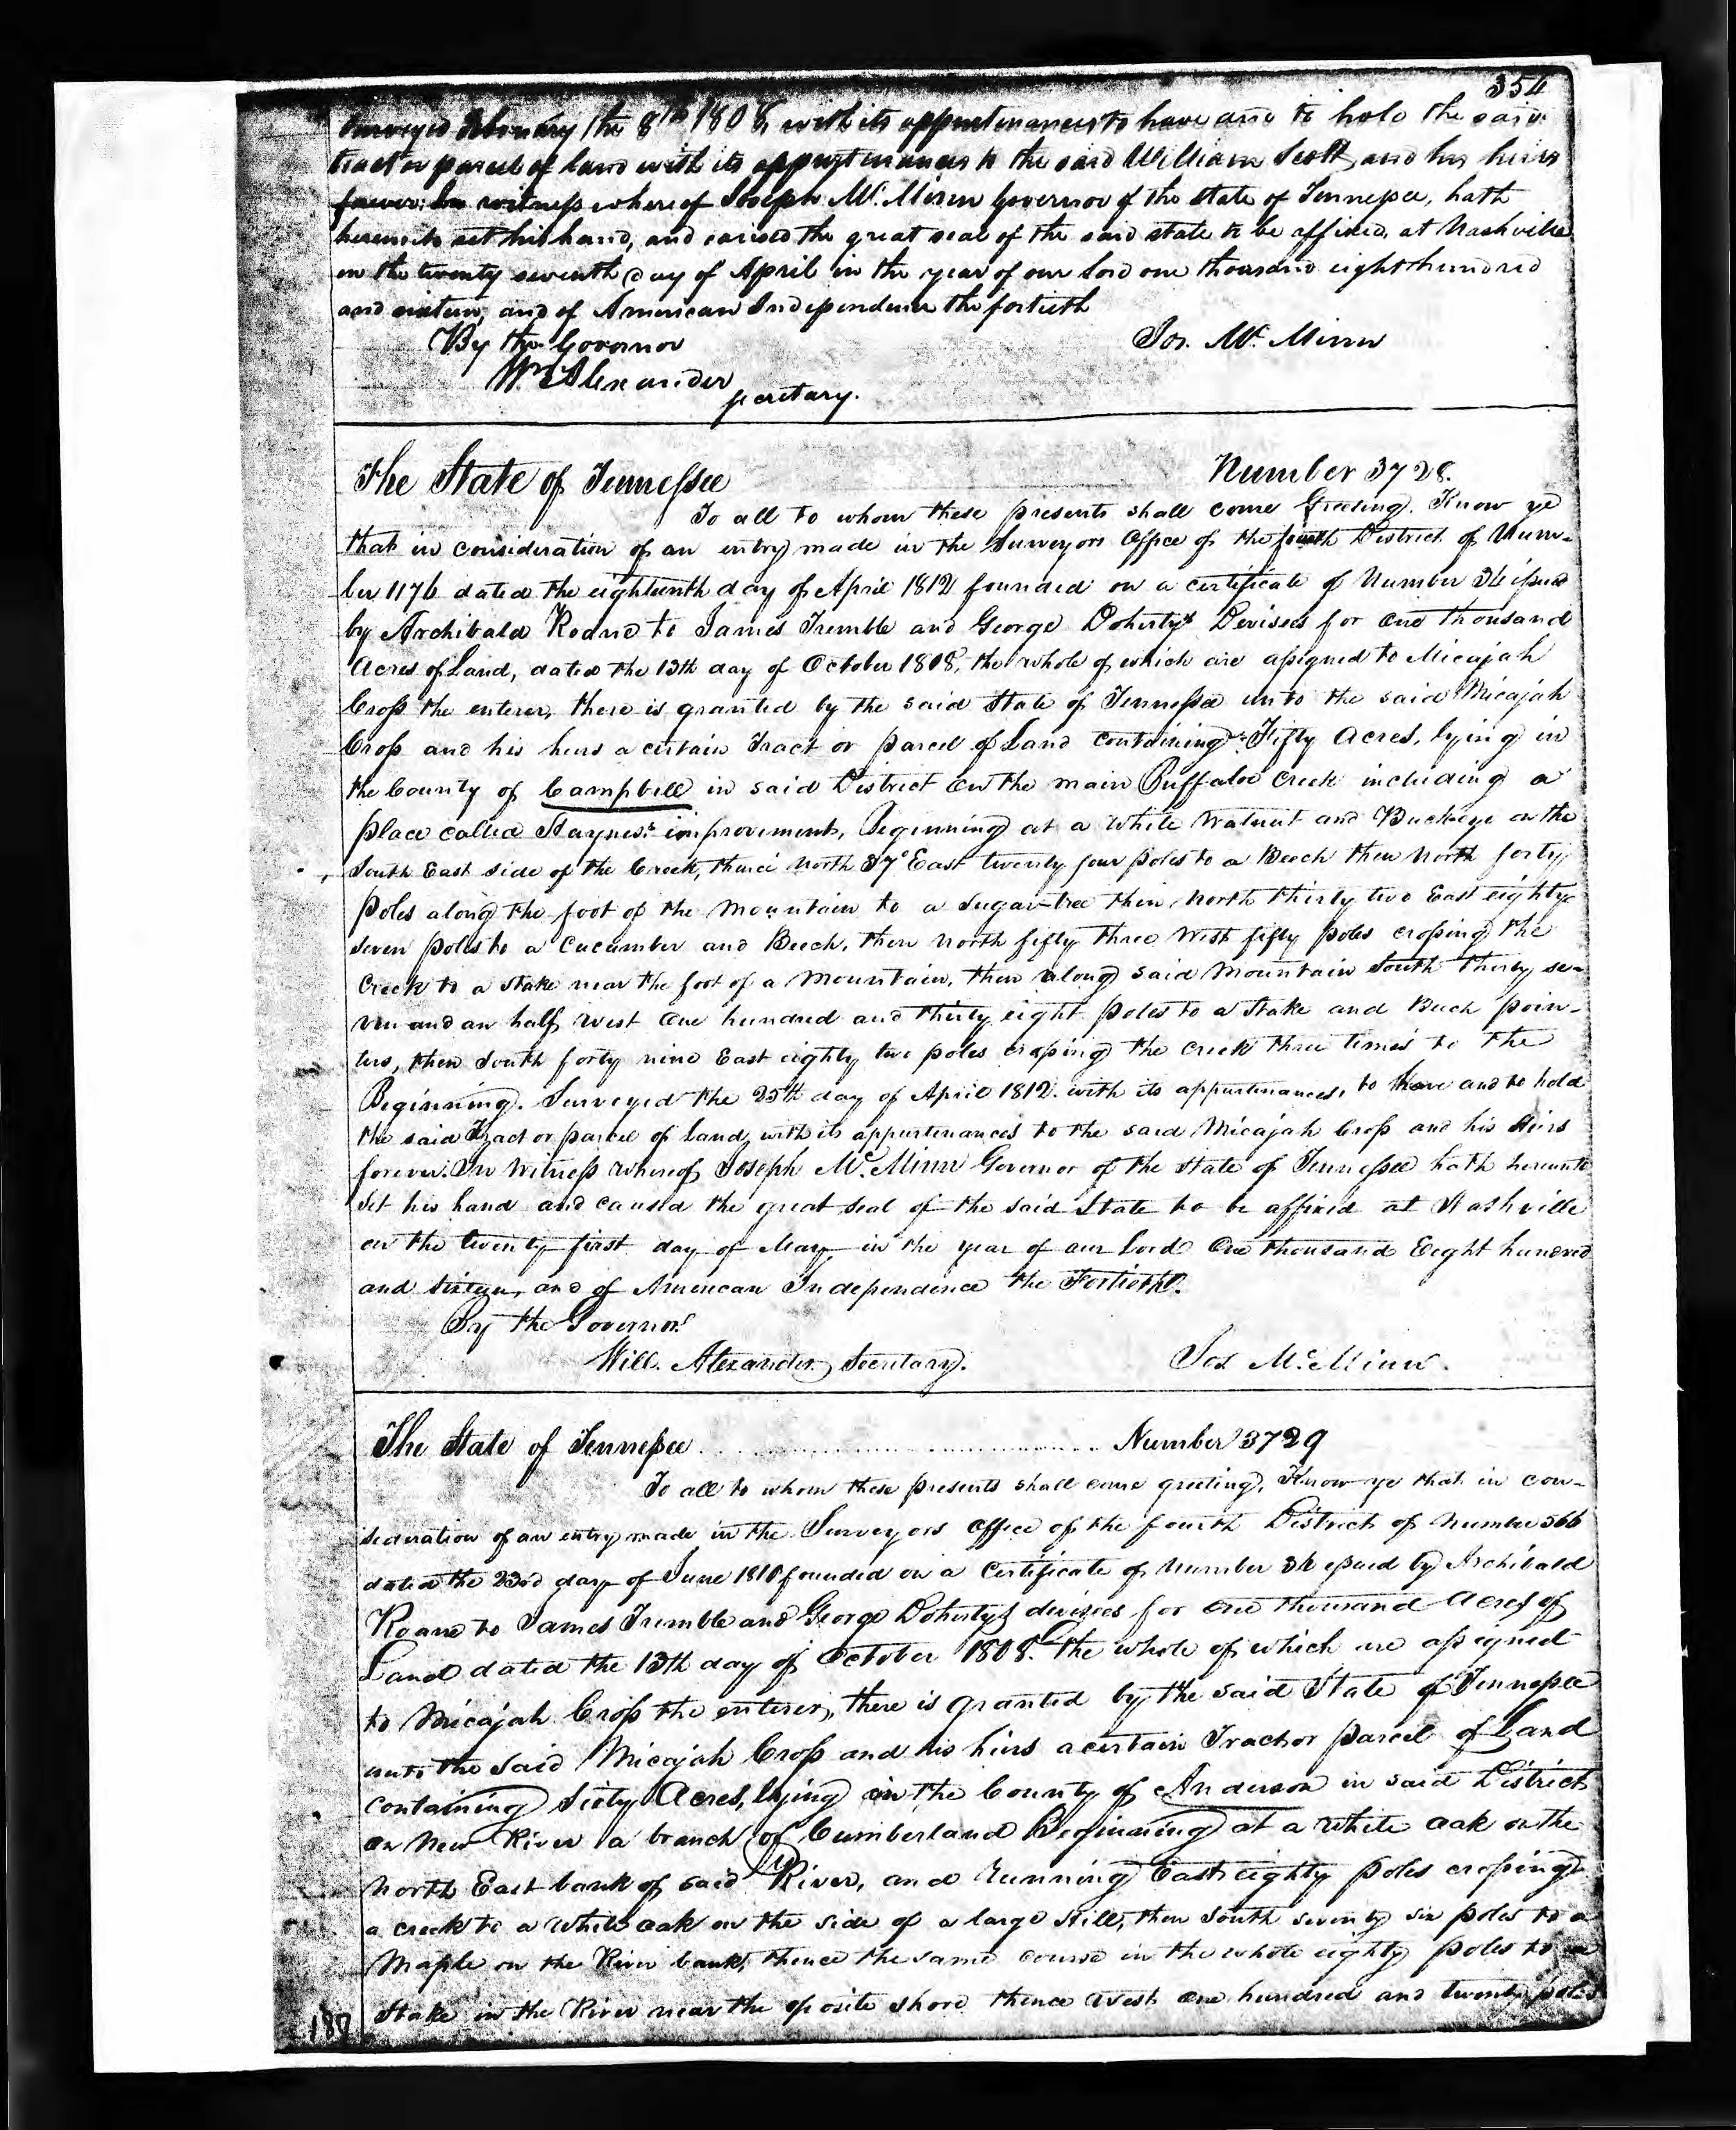 354
Surveyed February the 8th 1808, with its appurtenances to have and to hold the said
tract or parcel of land with its appurtenances to the said William Scott and his heirs
forever. In witness whereof Joseph McMinn Governor of the state of Tennessee, hath
hereunto set his hand, and caused the great seal of the said state to be affixed, at Nashville
on the twenty seventh day of April in the year of our Lord one thousand eight hundred
and sixteen, and of American Independence the fortieth
By the Governor Jos. McMinn
Wm Alexander
Secretary.
The State of Tennessee Number 3728.
To all to whom these presents shall come Greeting. Know ye
that in consideration of an entry made in the Surveyors Office of the fourth District of Num-
ber 1176 dated the eighteenth day of April 1812 founded on a certificate of Number 36 issued
by Archibald Roane to James Tremble and George Dohertys Devisees for One thousand
Acres of Land, dated the 13th day of October 1808, the whole of which are assigned to Micajah
Cross the enterer, there is granted by the said State of Tennessee unto the said Micajah
Cross and his heirs a certain Tract or parcel of Land containing Fifty Acres, lying in
the County of Campbell in said District On the main Buffaloe Creek including a
place called Haynes's improvement, Beginning at a White Walnut and Buckeye on the
South East side of the Creek, thence North 37° East twenty four poles to a Beech then North forty
Poles along the foot of the Mountain to a Sugar-tree then North thirty two East eighty
seven poles to a Cucumber and Beech, then North fifty three West fifty poles crossing the
Creek to a stake near the foot of a Mountain, then along said Mountain South thirty se-
ven and an half West One hundred and thirty eight poles to a Stake and Beech poin-
ters, then South forty nine East eighty two poles crossing the creek three times to the
Beginning. Surveyed the 25th day of April 1812. with its appurtenances, to have and to hold
the said Tract or parcel of land with its appurtenances to the said Micajah Cross and his Heirs
forever. In Witness whereof Joseph McMinn Governor of the State of Tennessee hath hereunto
Set his hand and caused the great seal of the said State to be affixed at Nashville
on the twenty first day of May in the year of our Lord One thousand Eight hundred
and sixteen, and of American Independence the Fortieth.
By the Governor
Will. Alexander Secretary. Jos McMinn.
The State of Tennessee Number 3729
To all to whom these presents shall come greeting, Know ye that in con-
sideration of an entry made in the Surveyors office of the fourth District of Number 566
dated the 23rd day of June 1810 founded on a Certificate of Number 36 issued by Archibald
Roane to James Tremble and George Dohertys devisees for One thousand Acres of
Land dated the 13th day of October 1808. The whole of which are assigned
to Micajah Cross the enterer, there is granted by the said State of Tennessee
unto the said Micajah Cross and his heirs a certain Tract or parcel of Land
containing Sixty Acres, lying in the County of Anderson in said District
on New River a branch of Cumberland Beginning at a White oak on the
North East bank of said River, and running East eighty poles crossing
a creek to a White oak on the side of a large Hill, then South seventy six poles to a
Maple on the River bank, thence the same course in the whole eighty poles to a
Stake in the River near the oposite shore thence West one hundred and twenty poles
180